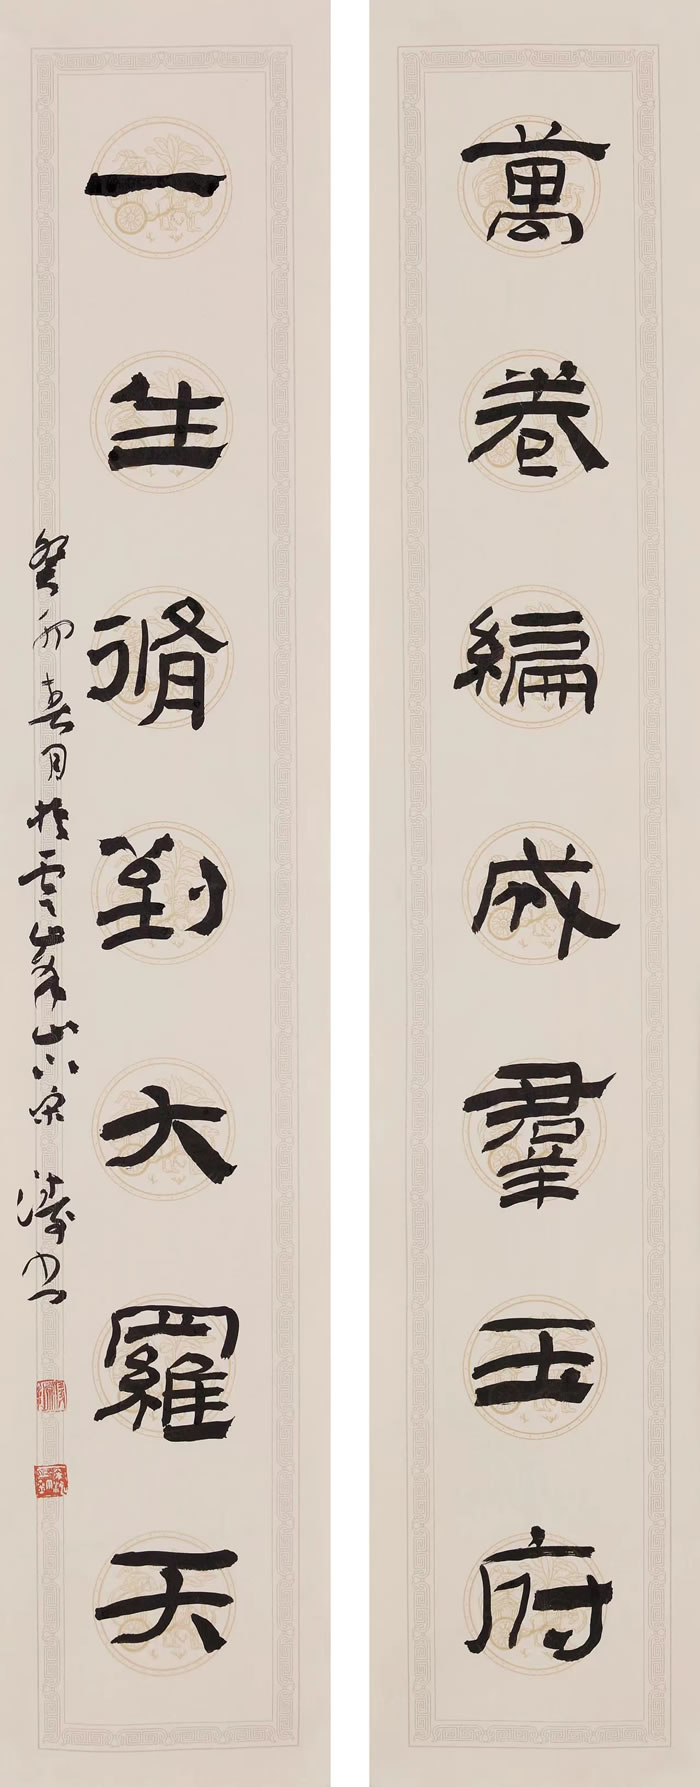 萬卷編成羣玉府
一生脩到大羅天
癸卯春月於雲峰山下宋濤書